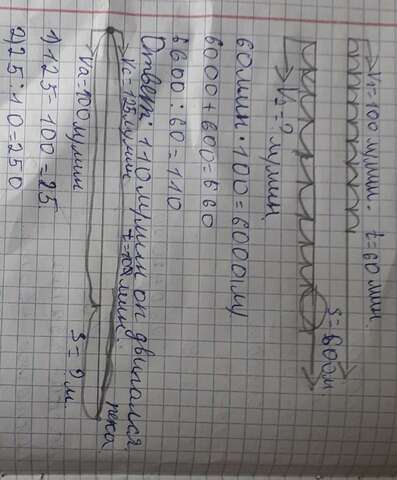 V₁=100 м/мин. t=60 мин.
S=600м
V₂=? м/мин.
60мин·100=6000(м)
6000+600=660
6600:60=110
Ответ: 110 м/мин он двигался.
Vс=125м/мин t=10 мин.
река
Vа=100м/мин S=? м.
1)125-100=25
2)25·10=250